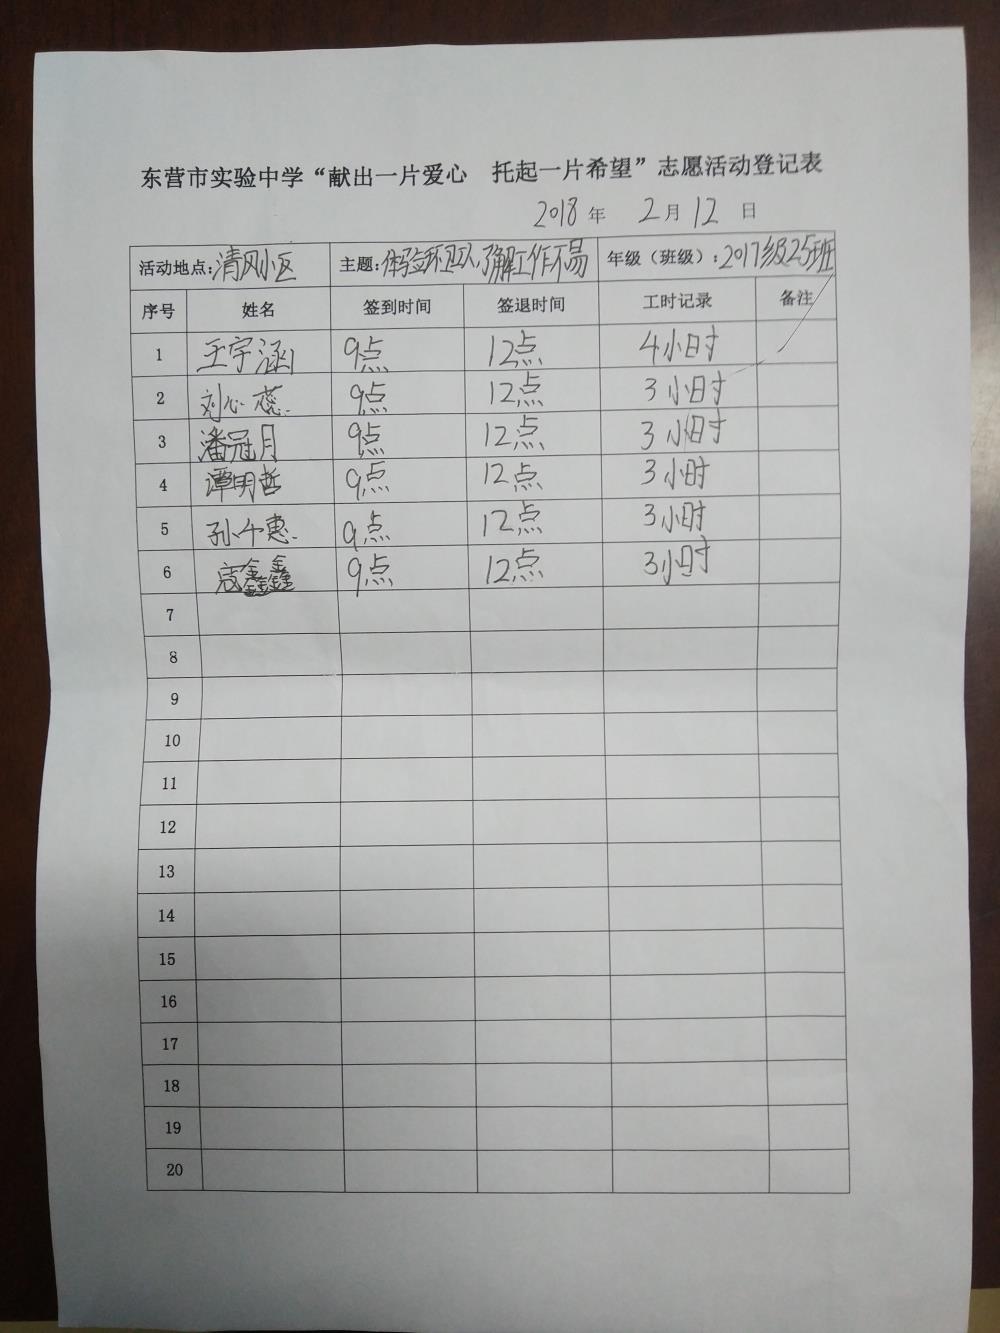 东营市实验中学“献出一片爱心 托起一片希望”志愿活动登记表
2018 年 2 月 12 日
活动地点:清风小区 主题:体验环卫工人,了解工作不易 年级（班级）:2017级25班
序号 姓名 签到时间 签退时间 工时记录 备注
1 王宇涵 9点 12点 4小时
2 刘心蕊 9点 12点 3小时
3 潘冠月 9点 12点 3小时
4 谭明哲 9点 12点 3小时
5 孙小惠 9点 12点 3小时
6 鑫鑫 9点 12点 3小时
7
8
9
10
11
12
13
14
15
16
17
18
19
20